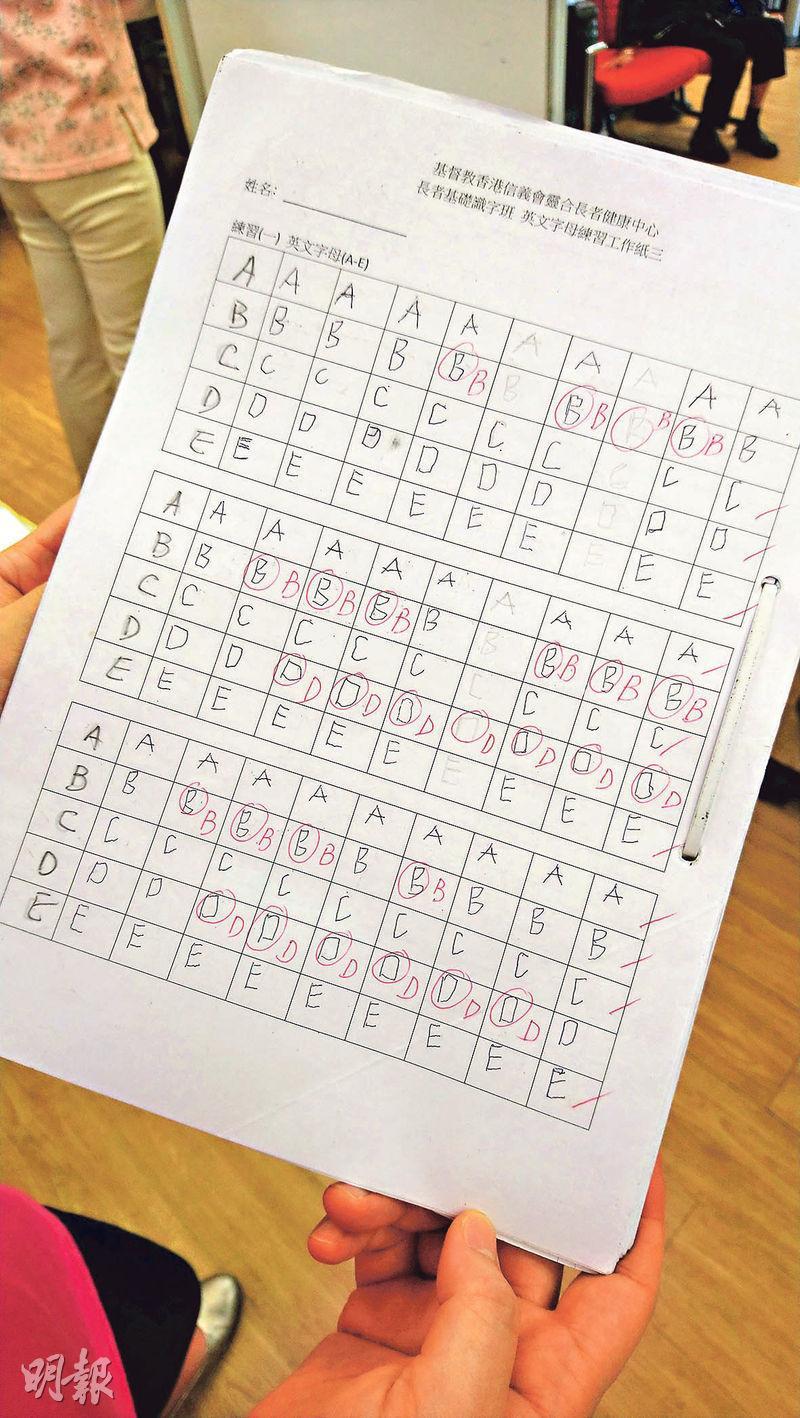 基督教香港信義會靈合長者健康中心
長者基礎識字班 英文字母練習工作紙三
姓名:
練習(一) 英文字母(A-E)
A A A A A A A A A A
B B B B B B B B B B B B B B
C C C C C C C C C C
D D D D D D D D D D
E E E E E E E E E E
A A A A A A A A A A
B B B B B B B B B B B B B B B B
C C C C C C C C C C
D D D D D D D D D D D D D D D D D
E E E E E E E E E E
A A A A A A A A A A
B B B B B B B B B B B B B B
C C C C C C C C C C
D D D D D D D D D D D D D D D D
E E E E E E E E E E
明報